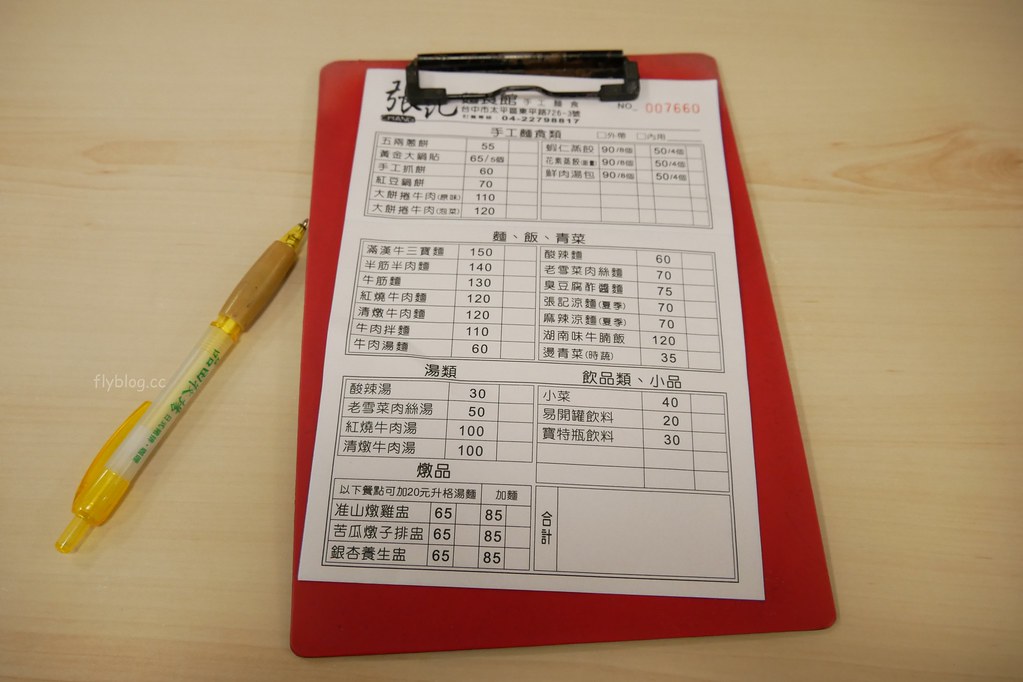 張記
麵食館 手工麵食
NO. 007660
台中市太平區東平路726-3號
訂餐專線 04-22798817
手工麵食類 □外帶 □內用
五兩蔥餅 55
黃金大鍋貼 65/5個
手工抓餅 60
紅豆鍋餅 70
大餅捲牛肉(原味) 110
大餅捲牛肉(泡菜) 120
蝦仁蒸餃 90/8個 50/4個
花素蒸餃 90/8個 50/4個
鮮肉湯包 90/8個 50/4個
麵、飯、青菜
滿漢牛三寶麵 150
半筋半肉麵 140
牛筋麵 130
紅燒牛肉麵 120
清燉牛肉麵 120
牛肉拌麵 110
牛肉湯麵 60
酸辣麵 60
老雪菜肉絲麵 70
臭豆腐酢醬麵 75
張記涼麵(夏季) 70
麻辣涼麵(夏季) 70
湖南味牛腩飯 120
燙青菜(時蔬) 35
湯類
酸辣湯 30
老雪菜肉絲湯 50
紅燒牛肉湯 100
清燉牛肉湯 100
飲品類、小品
小菜 40
易開罐飲料 20
寶特瓶飲料 30
燉品
以下餐點可加20元升格湯麵 加麵
准山燉雞盅 65 85
苦瓜燉子排盅 65 85
銀杏養生盅 65 85
合計
flyblog.cc